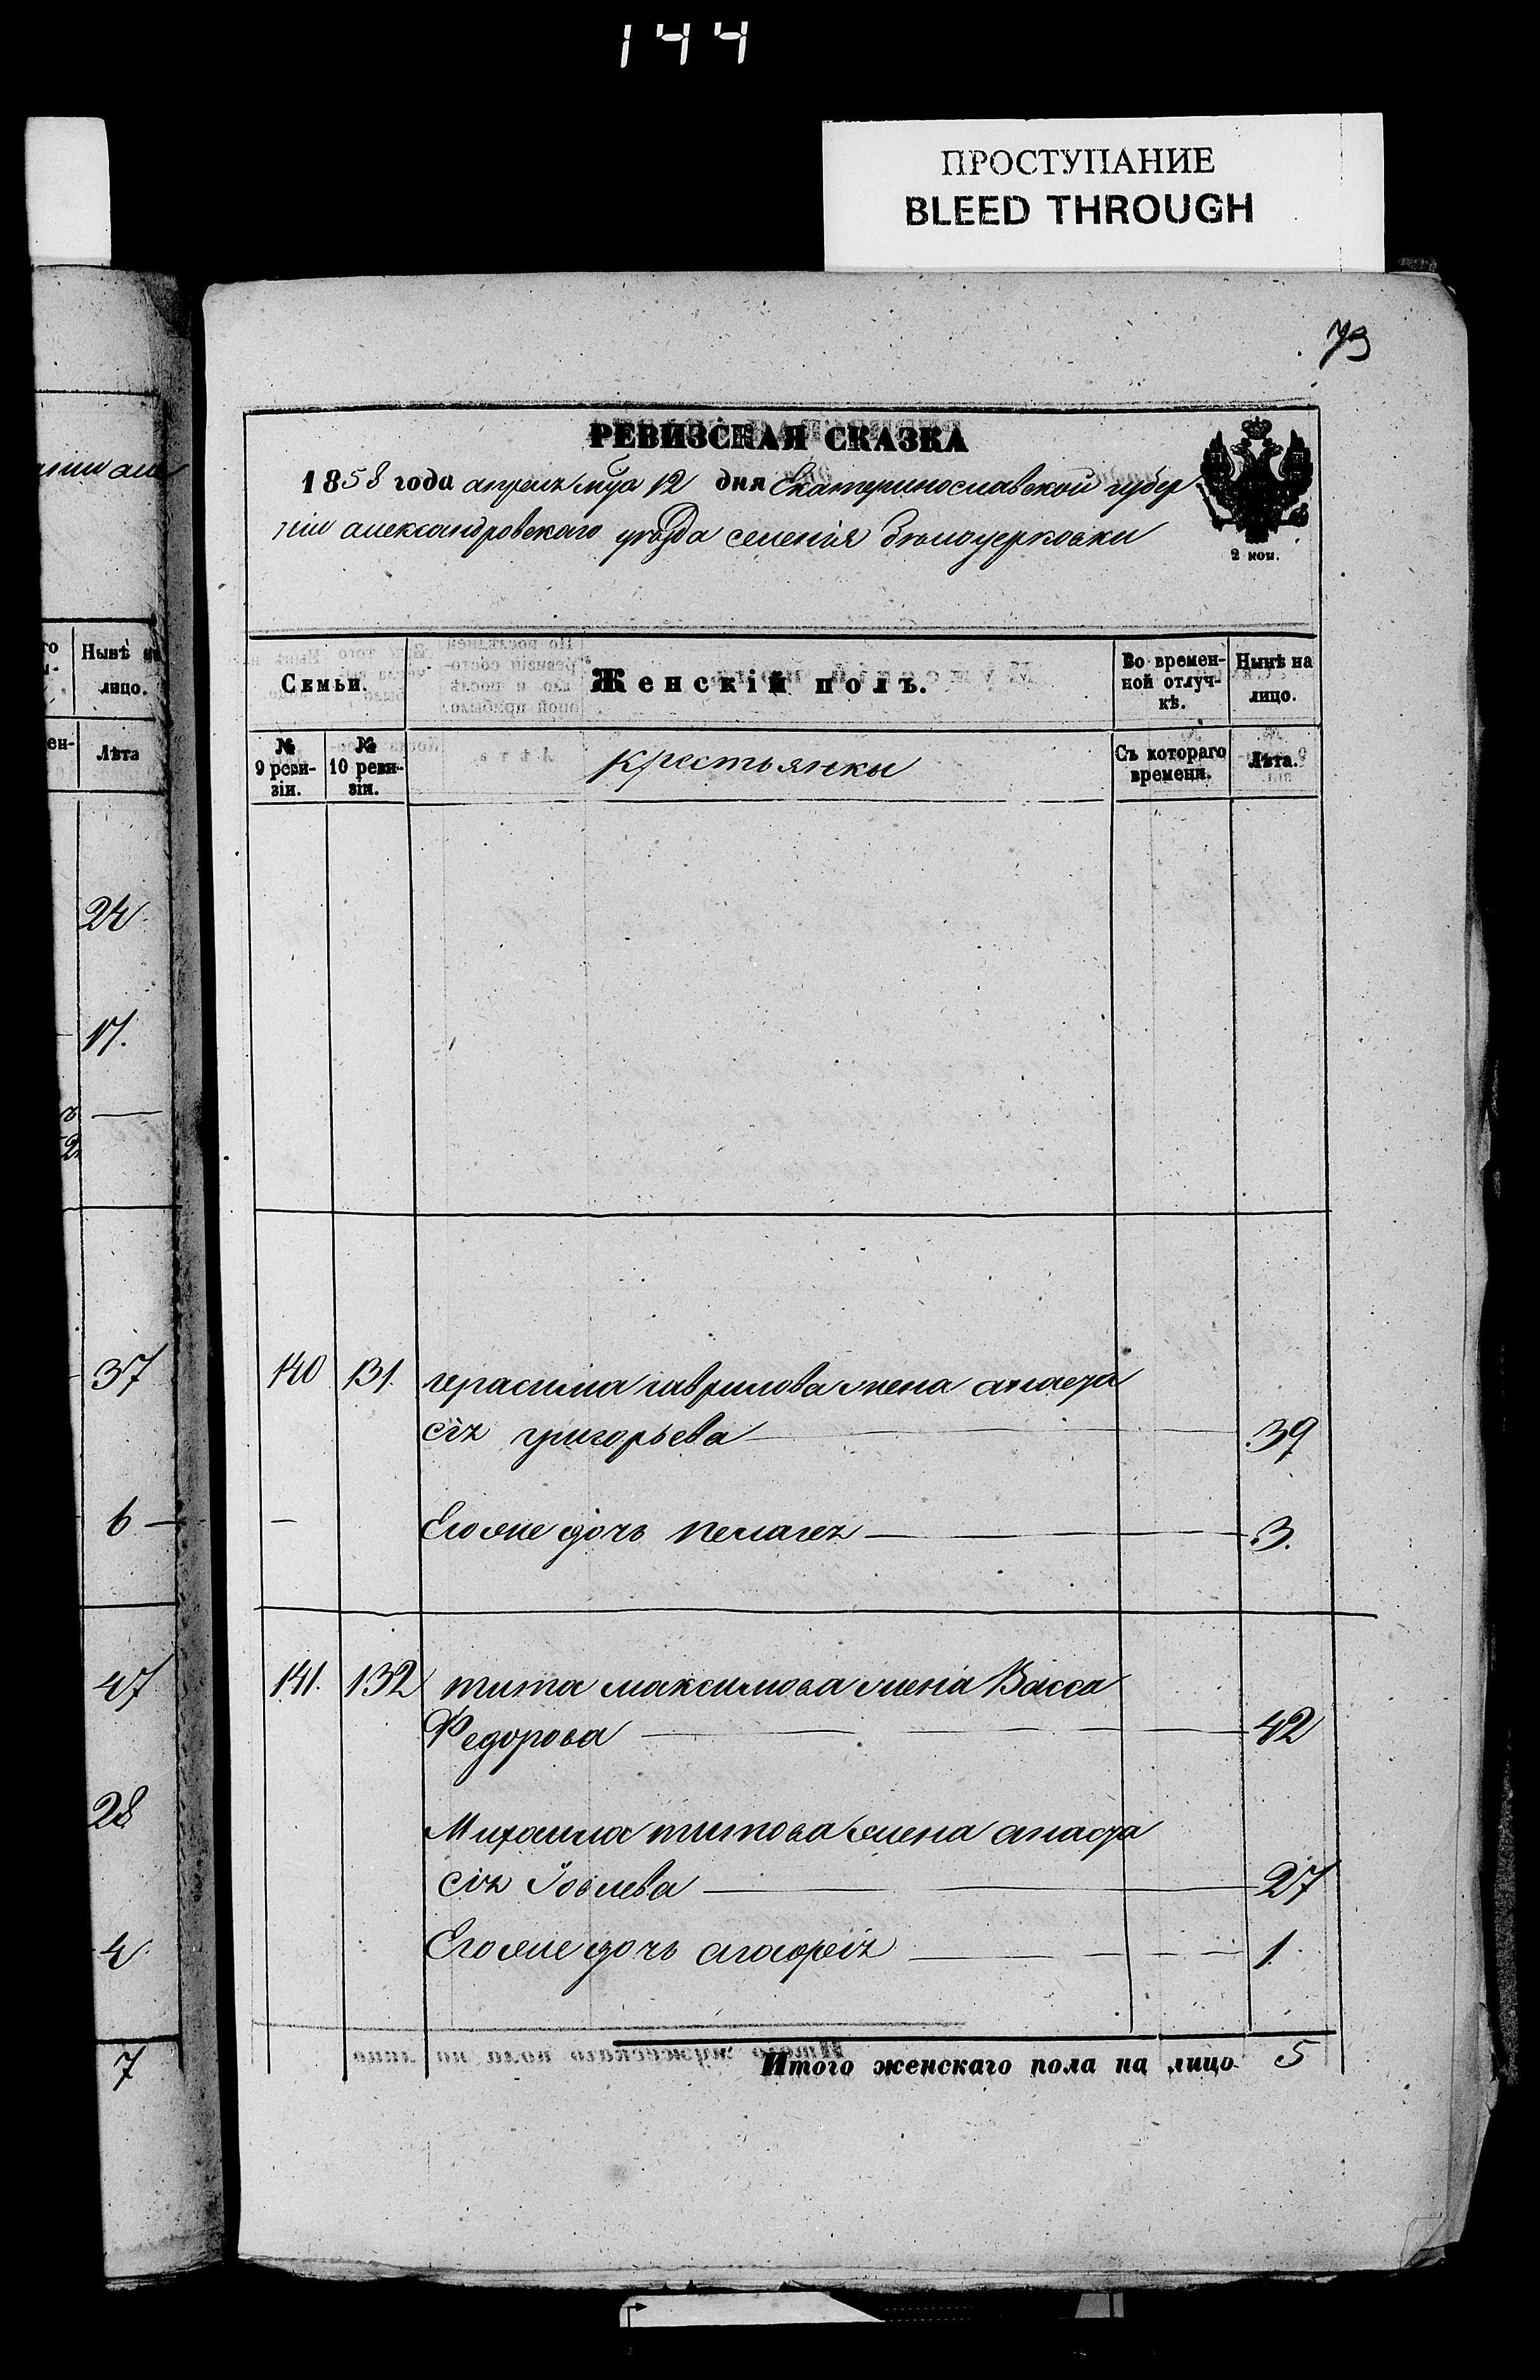 144
ПРОСТУПАНИЕ
BLEED THROUGH
73
РЕВИЗСКАЯ СКАЗКА
1858 года апреля мца 12 дня Екатеринославской губер
ніи александровскаго уѣзда селенія Бѣлоцерковки
2 коп.
Нынѣ на лицо.
Лѣта
24
17.
37
6
47
28
4
7
Семьи.
Женскій полъ.
Во времен-
ной отлуч-
кѣ.
Нынѣ на
лицо.
№
9 реви-
зіи.
№
10 реви-
зіи.
крестьянки
Съ котораго
времени.
Лѣта.
140 131. герасима гаврилова жена анаста
сія григорьева 39
Его же дочь пелагея 3.
141. 132 тита максимова жена Васса
Федорова 42
Михаила титова жена анаста
сія Іовлева 27
Его же дочь агафія 1.
Итого женскаго пола на лицо 5